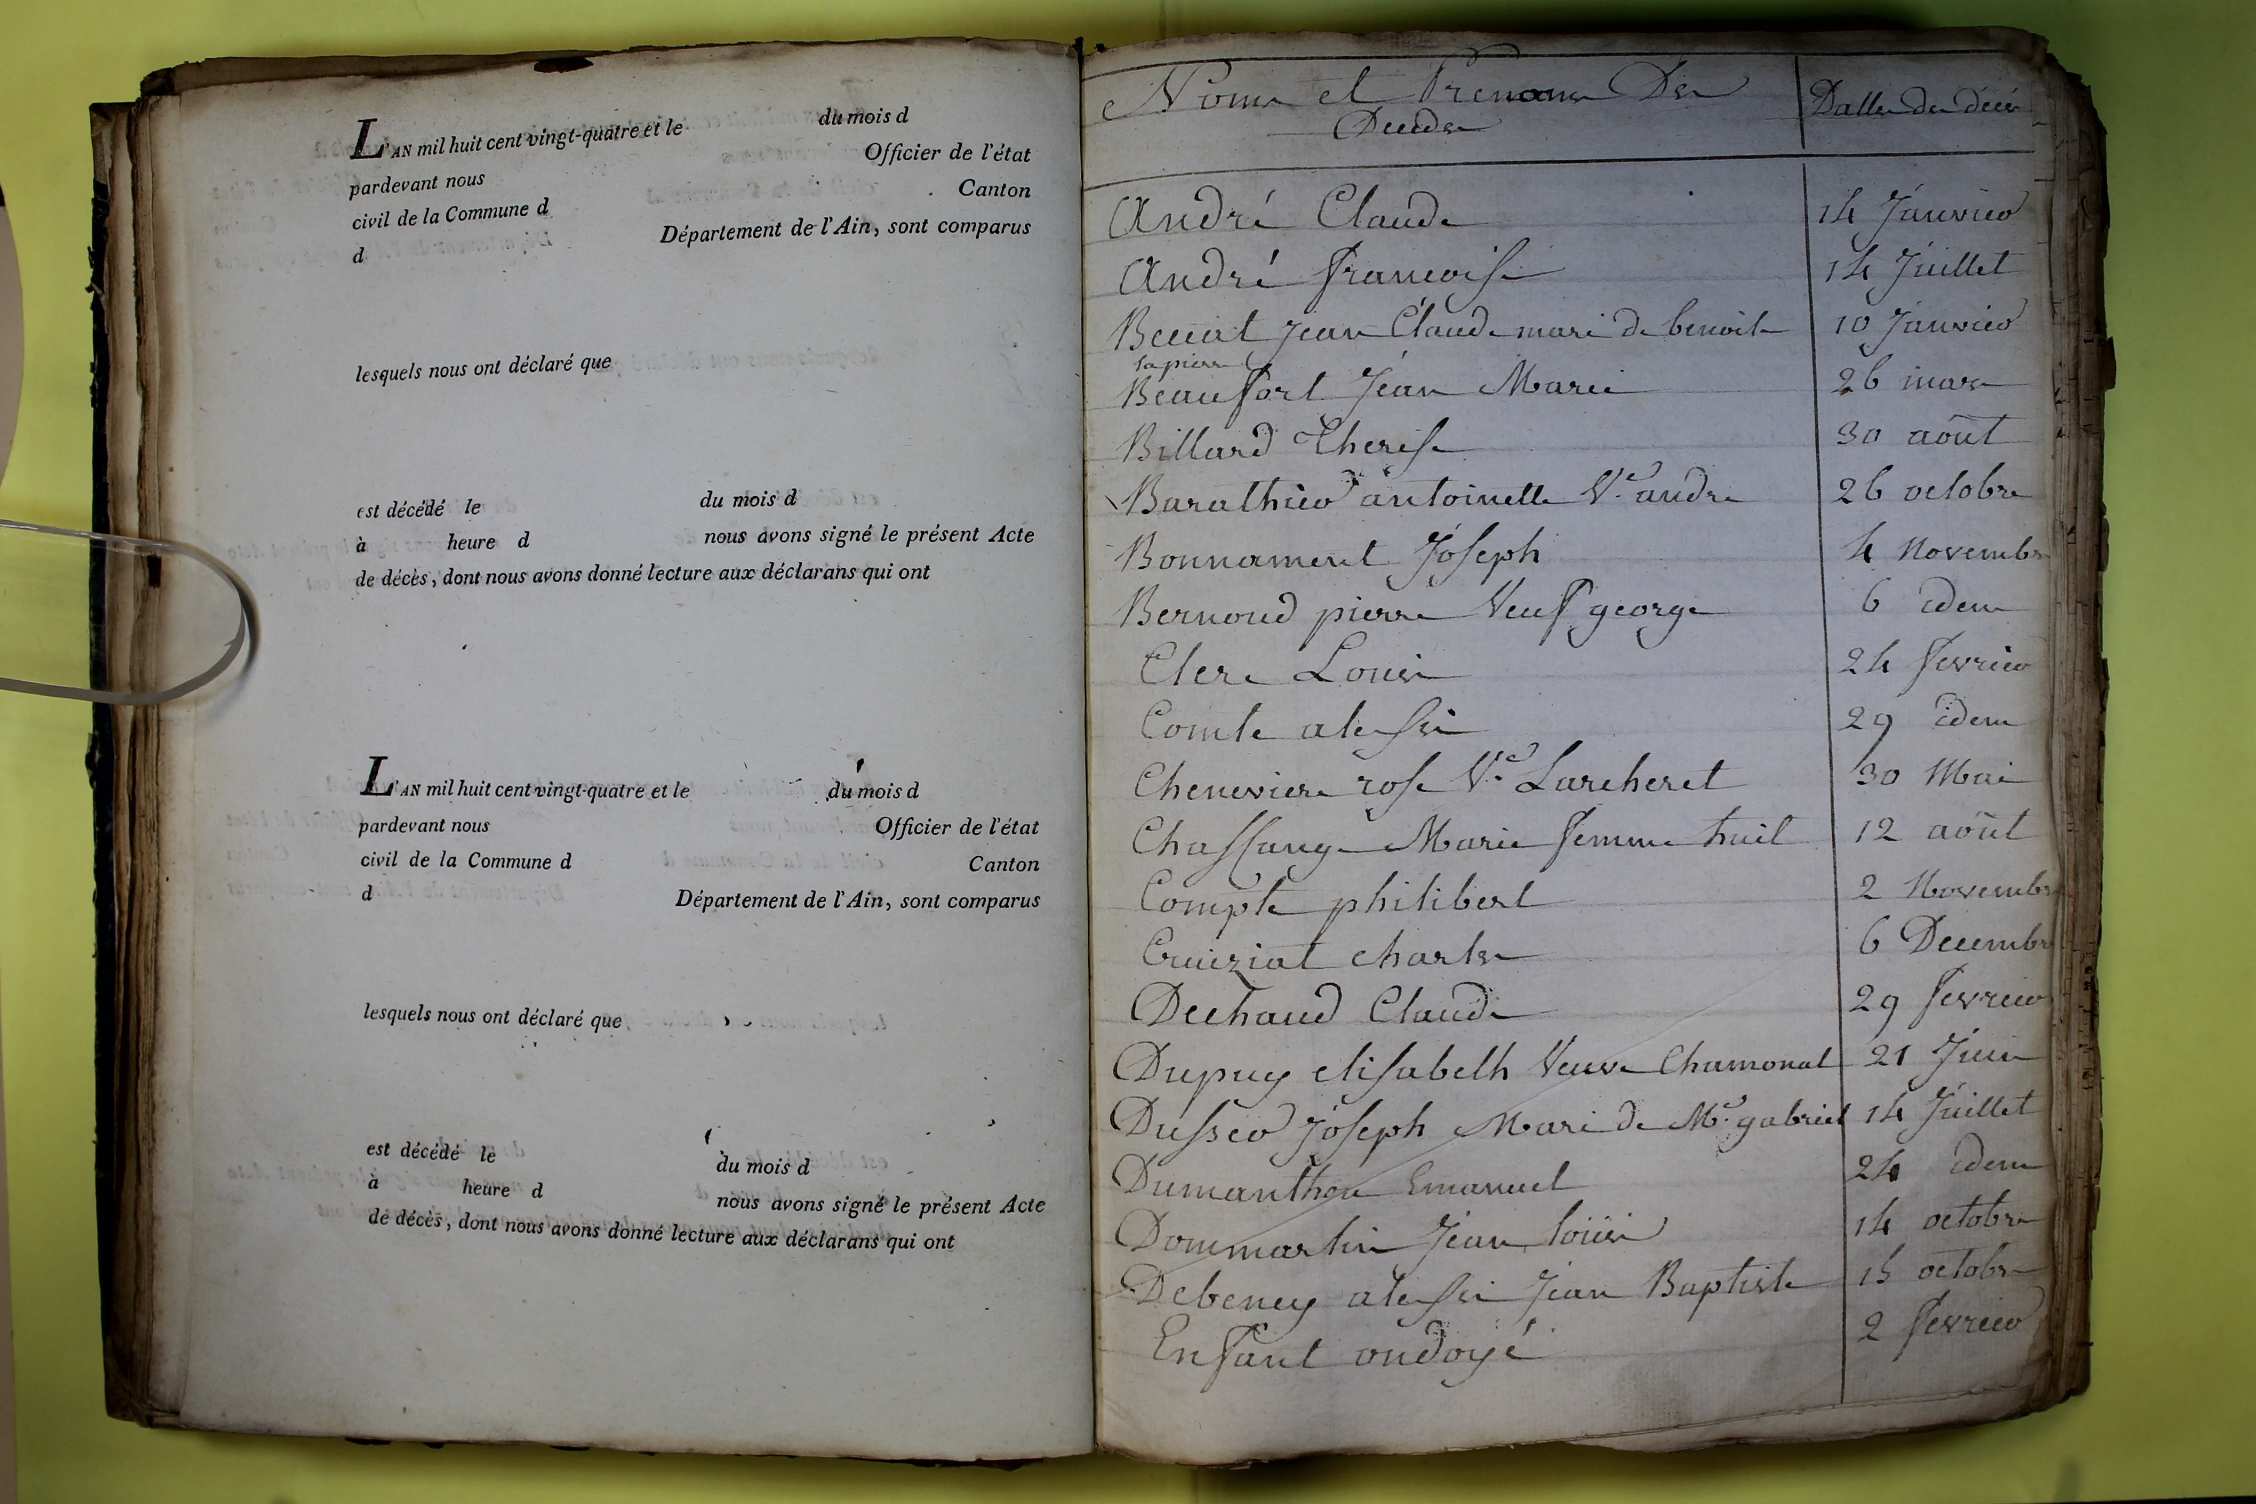 L'AN mil huit cent vingt-quatre et le du mois d
pardevant nous Officier de l'état
civil de la Commune d Canton
d Département de l'Ain, sont comparus
lesquels nous ont déclaré que
est décédé le du mois d
à heure d nous avons signé le présent Acte
de décès, dont nous avons donné lecture aux déclarans qui ont
L'AN mil huit cent vingt-quatre et le du mois d
pardevant nous Officier de l'état
civil de la Commune d Canton
d Département de l'Ain, sont comparus
lesquels nous ont déclaré que
est décédé le du mois d
à heure d nous avons signé le présent Acte
de décès, dont nous avons donné lecture aux déclarans qui ont
Noms et Prenoms Des Dattes des décès
Decedes
André Claude 14 Janvier
André francoise 14 Juillet
Jean Claude mari de benoite 10 Janvier
lapierre
Beaufort Jean Marie 26 mars
Billard Therese 30 août
Barathier antoinette Ve andre 26 octobre
Bonnament Joseph 4 Novembre
Bernoud pierre Veuf george 6 idem
Clerc Louis 24 fevrier
Comte alexis 29 idem
Cheneviere rose Ve Larcheret 30 Mai
Chassange Marie femme huit 12 août
Compte philibert 2 Novembre
Cruiziat charles 6 Decembre
Dechaud Claude 29 fevrier
Dupuy elisabeth Veuve Chamonal 21 Juin
Dusser Joseph Mari de Me gabriel 14 Juillet
Dumanthon Emanuel 24 idem
Dommartin Jean loüis 14 octobre
Debeney alexis Jean Baptiste 15 octobre
Enfant ondoyé 2 fevrier